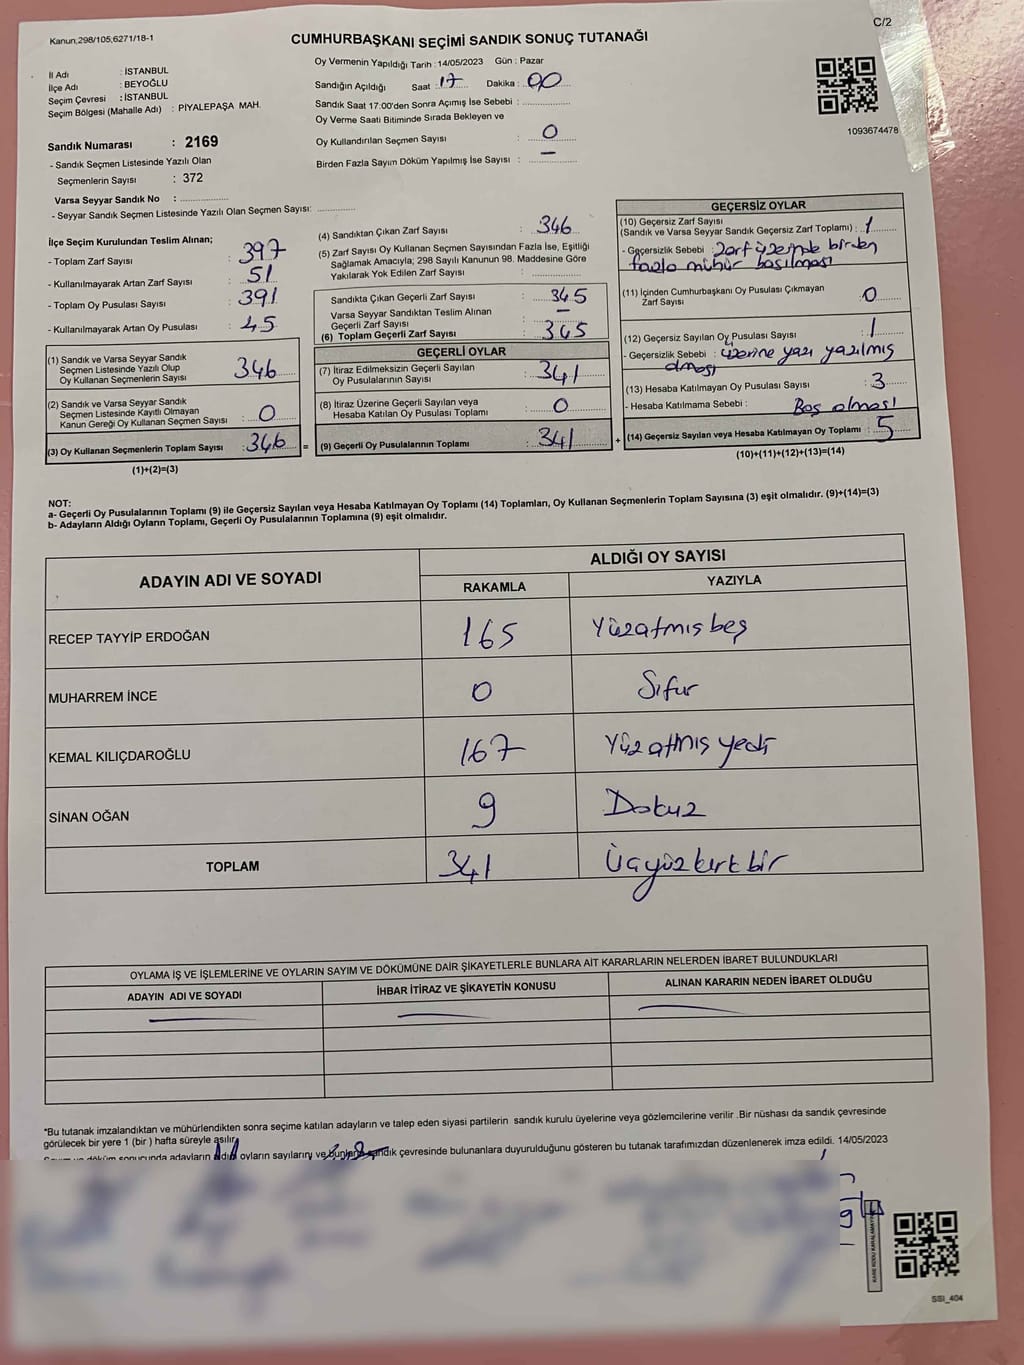 Kanun,298/105,6271/18-1
C/2
CUMHURBAŞKANI SEÇİMİ SANDIK SONUÇ TUTANAĞI
İl Adı : İSTANBUL
İlçe Adı : BEYOĞLU
Seçim Çevresi : İSTANBUL
Seçim Bölgesi (Mahalle Adı) : PİYALEPAŞA MAH.
Sandık Numarası : 2169
- Sandık Seçmen Listesinde Yazılı Olan
Seçmenlerin Sayısı : 372
Varsa Seyyar Sandık No :
- Seyyar Sandık Seçmen Listesinde Yazılı Olan Seçmen Sayısı:
Oy Vermenin Yapıldığı Tarih : 14/05/2023 Gün : Pazar
Sandığın Açıldığı Saat : 17 Dakika : 00
Sandık Saat 17:00'den Sonra Açımış İse Sebebi :
Oy Verme Saati Bitiminde Sırada Bekleyen ve
Oy Kullandırılan Seçmen Sayısı : 0
Birden Fazla Sayım Döküm Yapılmış İse Sayısı : —
1093674478
İlçe Seçim Kurulundan Teslim Alınan;
- Toplam Zarf Sayısı : 397
- Kullanılmayarak Artan Zarf Sayısı : 51
- Toplam Oy Pusulası Sayısı : 391
- Kullanılmayarak Artan Oy Pusulası : 45
(1) Sandık ve Varsa Seyyar Sandık
Seçmen Listesinde Yazılı Olup
Oy Kullanan Seçmenlerin Sayısı : 346
(2) Sandık ve Varsa Seyyar Sandık
Seçmen Listesinde Kayıtlı Olmayan
Kanun Gereği Oy Kullanan Seçmen Sayısı : 0
(3) Oy Kullanan Seçmenlerin Toplam Sayısı : 346 =
(1)+(2)=(3)
(4) Sandıktan Çıkan Zarf Sayısı : 346
(5) Zarf Sayısı Oy Kullanan Seçmen Sayısından Fazla İse, Eşitliği
Sağlamak Amacıyla; 298 Sayılı Kanunun 98. Maddesine Göre
Yakılarak Yok Edilen Zarf Sayısı :
Sandıkta Çıkan Geçerli Zarf Sayısı : 345
Varsa Seyyar Sandıktan Teslim Alınan
Geçerli Zarf Sayısı : —
(6) Toplam Geçerli Zarf Sayısı : 345
GEÇERLİ OYLAR
(7) İtiraz Edilmeksizin Geçerli Sayılan
Oy Pusulalarının Sayısı : 341
(8) İtiraz Üzerine Geçerli Sayılan veya
Hesaba Katılan Oy Pusulası Toplamı : 0
(9) Geçerli Oy Pusulalarının Toplamı : 341 +
GEÇERSİZ OYLAR
(10) Geçersiz Zarf Sayısı
(Sandık ve Varsa Seyyar Sandık Geçersiz Zarf Toplamı) : 1
- Geçersizlik Sebebi : Zarf üzerinde birden
fazla mühür basılması
(11) İçinden Cumhurbaşkanı Oy Pusulası Çıkmayan
Zarf Sayısı : 0
(12) Geçersiz Sayılan Oy Pusulası Sayısı : 1
- Geçersizlik Sebebi : üzerine yazı yazılmış
olması
(13) Hesaba Katılmayan Oy Pusulası Sayısı : 3
- Hesaba Katılmama Sebebi : Boş olması
(14) Geçersiz Sayılan veya Hesaba Katılmayan Oy Toplamı : 5
(10)+(11)+(12)+(13)=(14)
NOT:
a- Geçerli Oy Pusulalarının Toplamı (9) ile Geçersiz Sayılan veya Hesaba Katılmayan Oy Toplamı (14) Toplamları, Oy Kullanan Seçmenlerin Toplam Sayısına (3) eşit olmalıdır. (9)+(14)=(3)
b- Adayların Aldığı Oyların Toplamı, Geçerli Oy Pusulalarının Toplamına (9) eşit olmalıdır.
ADAYIN ADI VE SOYADI
ALDIĞI OY SAYISI
RAKAMLA YAZIYLA
RECEP TAYYİP ERDOĞAN 165 Yüzatmışbeş
MUHARREM İNCE 0 Sıfır
KEMAL KILIÇDAROĞLU 167 Yüzatmışyedi
SİNAN OĞAN 9 Dokuz
TOPLAM 341 Üçyüzkırkbir
OYLAMA İŞ VE İŞLEMLERİNE VE OYLARIN SAYIM VE DÖKÜMÜNE DAİR ŞİKAYETLERLE BUNLARA AİT KARARLARIN NELERDEN İBARET BULUNDUKLARI
ADAYIN ADI VE SOYADI İHBAR İTİRAZ VE ŞİKAYETİN KONUSU ALINAN KARARIN NEDEN İBARET OLDUĞU
*Bu tutanak imzalandıktan ve mühürlendikten sonra seçime katılan adayların ve talep eden siyasi partilerin sandık kurulu üyelerine veya gözlemcilerine verilir .Bir nüshası da sandık çevresinde
görülecek bir yere 1 (bir ) hafta süreyle asılır.
Sayım ve döküm sonucunda adayların aldığı oyların sayılarını ve bunların sandık çevresinde bulunanlara duyurulduğunu gösteren bu tutanak tarafımızdan düzenlenerek imza edildi. 14/05/2023
KARE KODU KARALAMAYINIZ
SSI_404